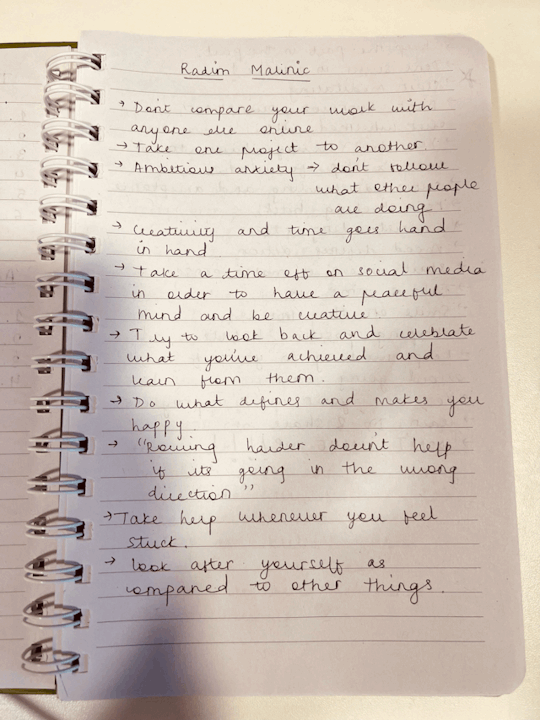 Radim Malinic
→ Dont compare your work with
anyone else online
→ Take one project to another
→ Ambitious anxiety → don't follow
what other people
are doing
→ Creativity and time goes hand
in hand
→ Take a time off on social media
in order to have a peaceful
mind and be creative.
→ Try to look back and celebrate
what you've achieved and
learn from them.
→ Do what defines and makes you
happy
→ "Rowing harder doesn't help
if its going in the wrong
direction"
→ Take help whenever you feel
stuck.
→ look after yourself as
compared to other things.